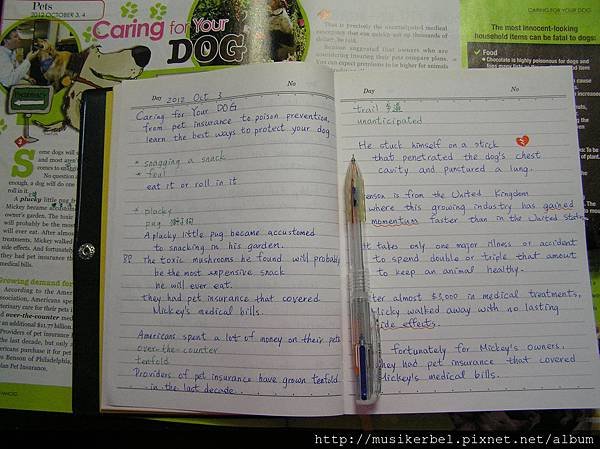 Pets
2012 OCTOBER 3, 4
Caring for Your
DOG
PHARMACY
That is precisely the unanticipated medical
emergency that can quickly eat up thousands of
dollars, he said.
Benson suggested that owners who are
considering insuring their pets compare plans.
You can expect premiums to be higher for animals
CARING FOR YOUR DOG
The most innocent-looking
household items can be fatal to dogs:
Food
Chocolate is highly poisonous for dogs and
Some dogs will
and most aren't
comes to
No question
enough, a dog will do one
roll in it.
A plucky little pug
Mickey became
owner's garden. The toxic
will probably be the most
will ever eat. After almost
treatments, Mickey walked
side effects. And fortunate
they had pet insurance that
medical bills.
Growing demand for
According to the American
Association, Americans spent
veterinary care for their pets in
over-the-counter medi
an additional $11.77 billion
Providers of pet insurance
the last decade, but only
Americans purchase it for pet
Benson of Philadelphia,
Pet Insurance.
Day 2012 Oct 3 No
Caring for Your DOG
from pet insurance to poison prevention,
learn the best ways to protect your dog.
* snagging a snack
* foul
eat it or roll in it
* plucky
pug 哈巴狗
A plucky little pug became accustomed
to snacking in his garden.
The toxic mushrooms he found will probably
be the most expensive snack
he will ever eat.
they had pet insurance that covered
Mickey's medical bills.
Americans spent a lot of money on their pets
over-the-counter
tenfold
Providers of pet insurance have grown tenfold
in the last decade.
Day No
trail 步道
unanticipated
He stuck himself on a stick
that penetrated the dog's chest
cavity and punctured a lung.
Benson is from the United Kingdom
where this growing industry has gained
momentum faster than in the United States
It takes only one major illness or accident
to spend double or triple that amout
to keep an animal healthy.
After almost $3,000 in medical treatments,
Micky walked away with no lasting
side effects.
fortunately for Mickey's owners,
they had pet insurance that covered
Mickey's medical bills.
http://musikerbel.pixnet.net/album